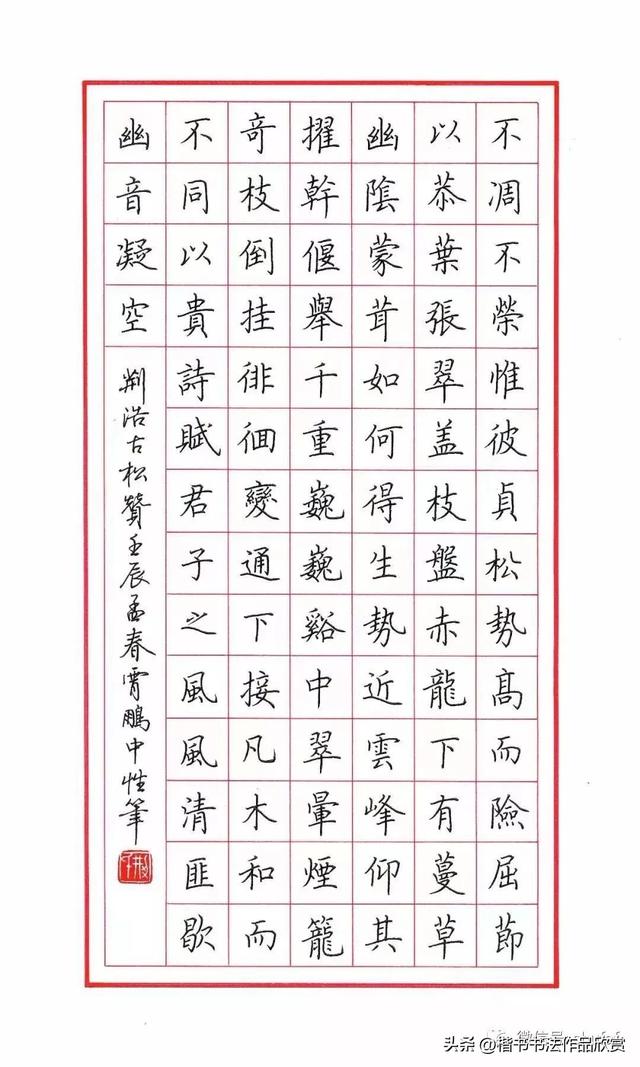 不凋不榮惟彼貞松勢髙而險屈節
以恭葉張翠盖枝盤赤龍下有蔓草
幽陰蒙茸如何得生勢近雲峰仰其
擢幹偃舉千重巍巍谿中翠暈煙籠
奇枝倒挂徘徊變通下接凡木和而
不同以貴詩賦君子之風風清匪歇
幽音凝空
荆浩古松贊壬辰孟春霄鵬中性筆
微信号
头条 @楷书书法作品欣赏